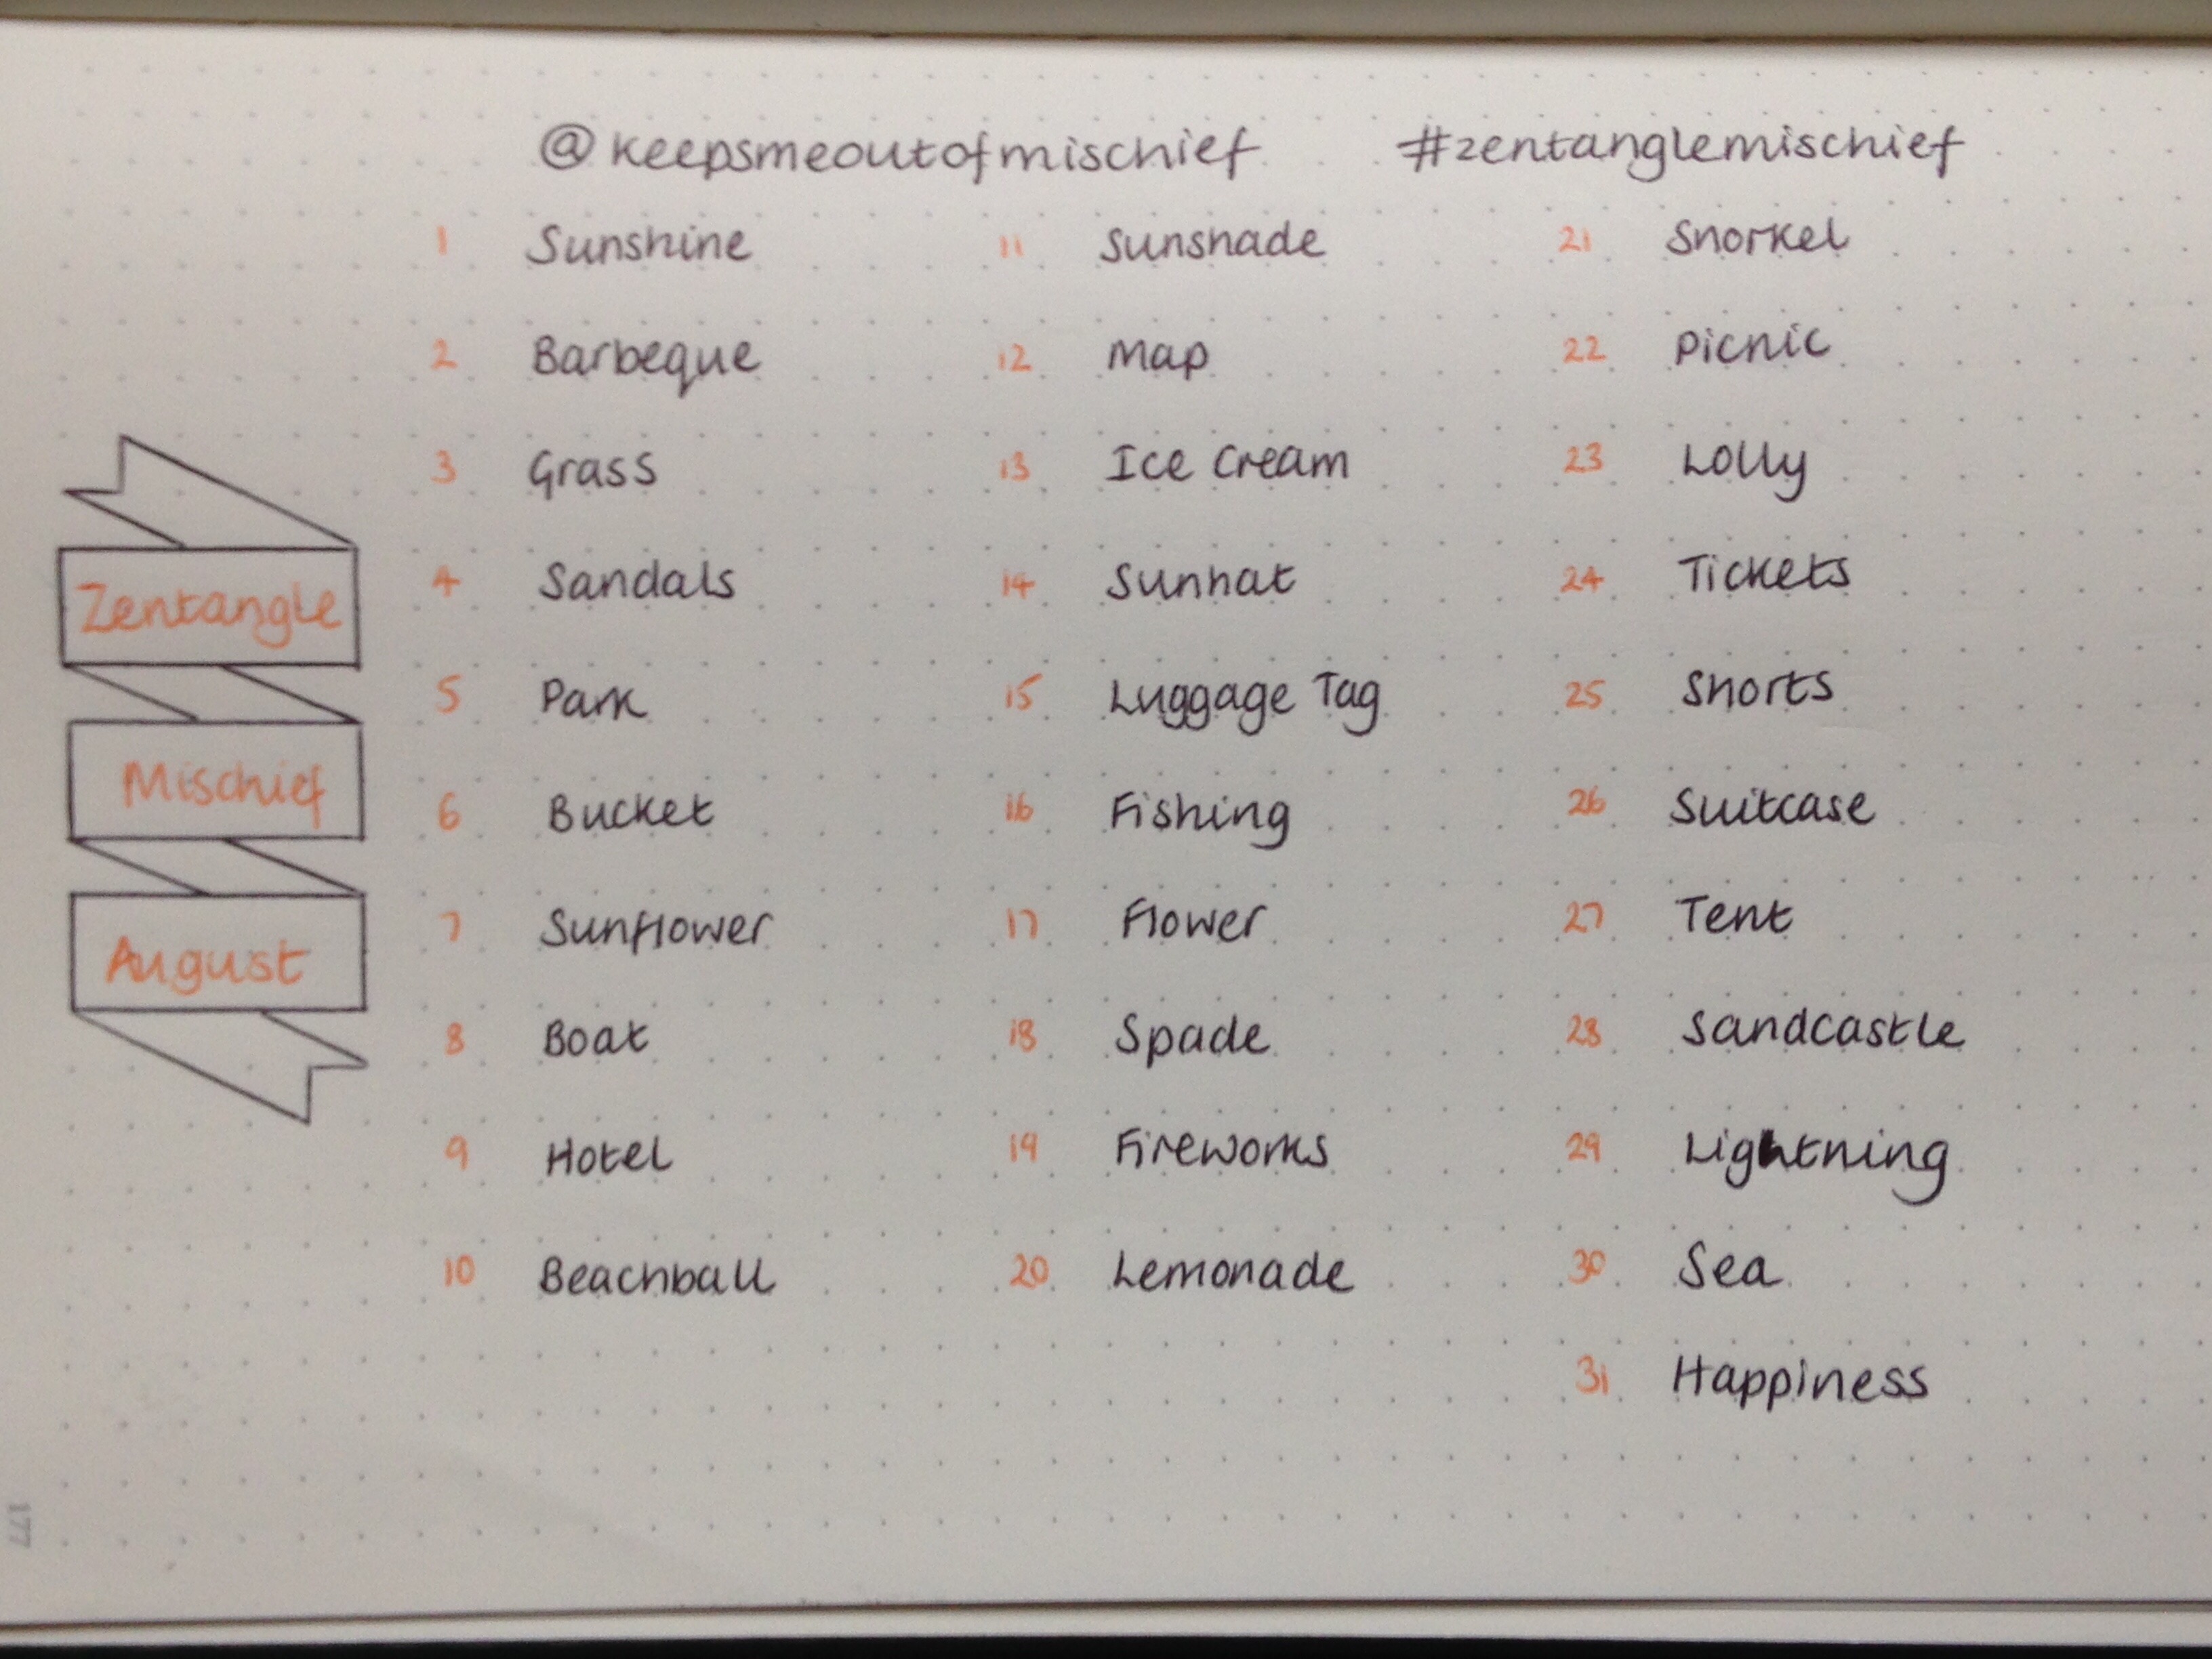 @keepsmeoutofmischief #zentanglemischief
Zentangle
Mischief
August
1 Sunshine
2 Barbeque
3 Grass
4 Sandals
5 Park
6 Bucket
7 Sunflower
8 Boat
9 Hotel
10 Beachball
11 Sunshade
12 Map
13 Ice Cream
14 Sunhat
15 Luggage Tag
16 Fishing
17 Flower
18 Spade
19 Fireworks
20 Lemonade
21 Snorkel
22 Picnic
23 Lolly
24 Tickets
25 Shorts
26 Suitcase
27 Tent
28 Sandcastle
29 Lightning
30 Sea
31 Happiness
177